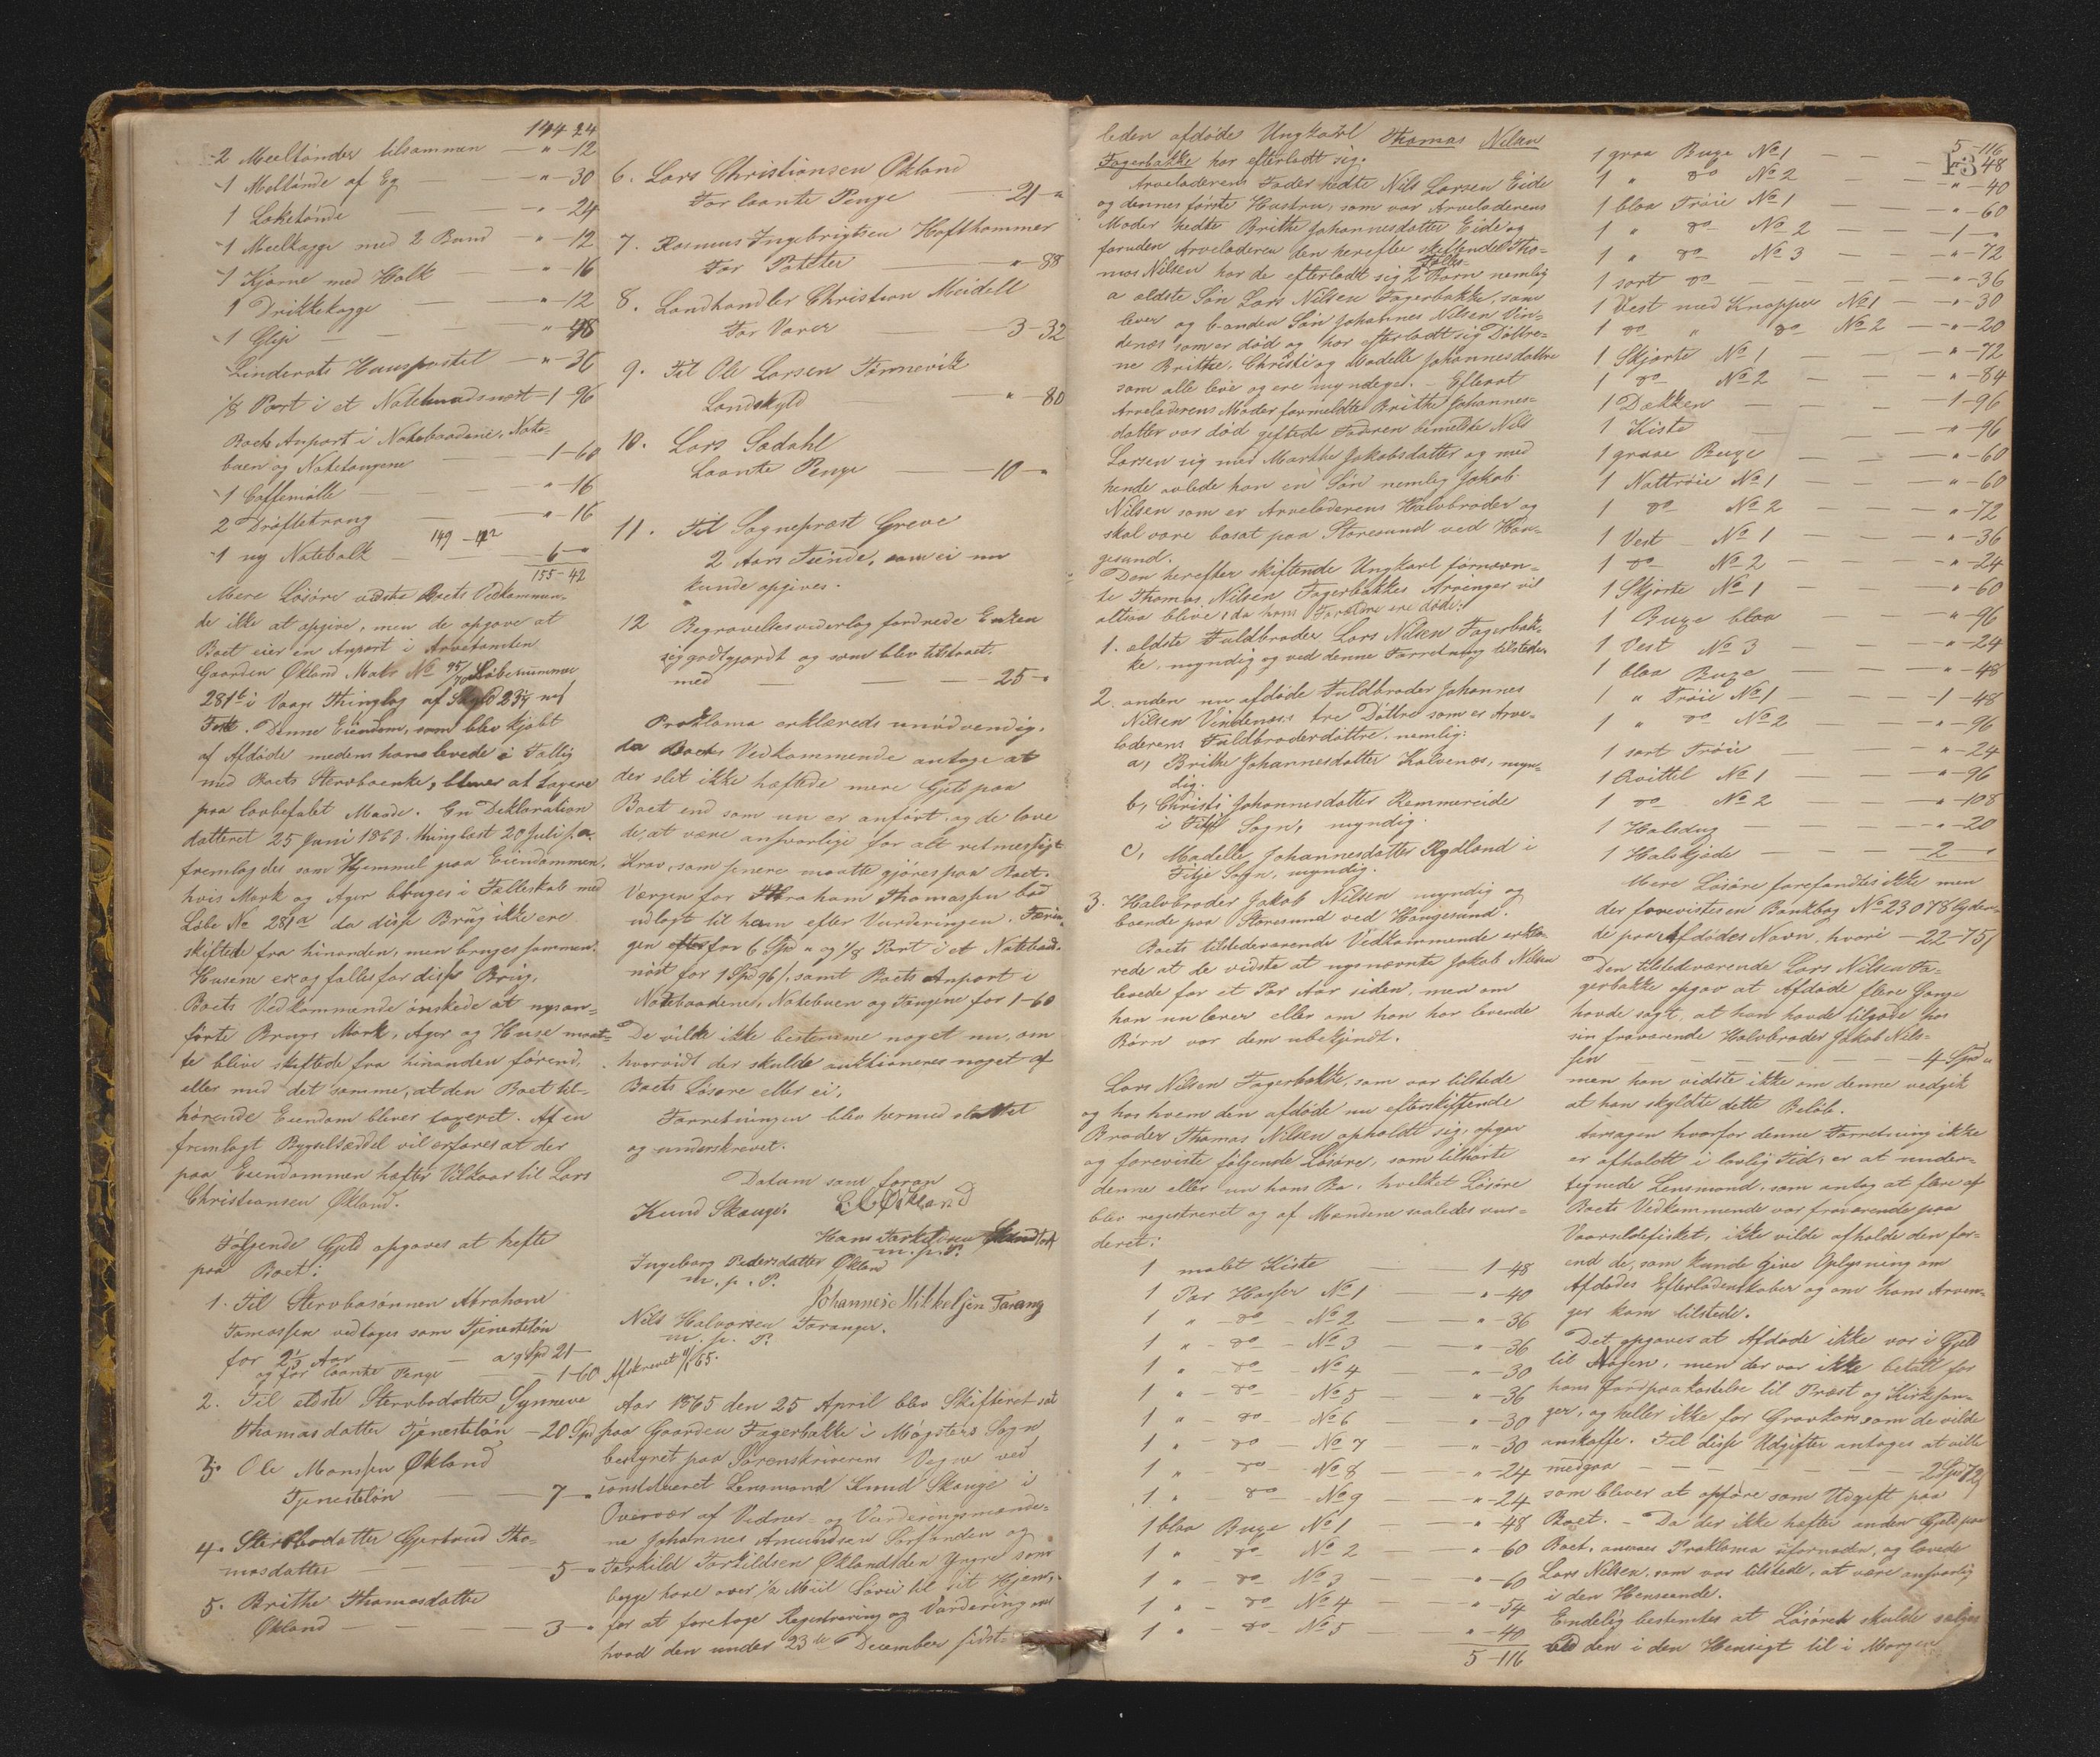 144-24
2 Meeltønder tilsammen — " -12
1 Meeltønde af Eg — " -30
1 Laketønde — " -24
1 Meelkagge med 2 Bund — " -12
1 Kjørne med Holk — " -16
1 Drikkekagge — " -12
1 Glip — " -48
Linderots Huuspostel — " -36
1/8 Part i et Notebaadsnøst -1-96
Boets Anpart i Notebaadene, Note-
buen og Notetougene — 1-60
1 Caffemølle — " -16
2 Drøftetroug — " -16
149-42
1 ny Notebolk — 6-"
155-42
Mere Løsøre vidste Boets Vedkommen-
de ikke at opgive, men de opgave at
Boet eier en Anpart i Arvetomten
Gaarden Økland Matr No 95/ Løbenummer
281b i Vaags Thinglag af Skyld
Denne Eiendom, som blev kjøbt
af Afdøde medens han levede i Fællig
med Boets Stervboenke, bliver at tagere
paa lovbefalet Maade. En Deklaration
datteret 25 Juni 1863. thinglæst 20 Juli s. a.
fremlagdes som Hjemmel paa Eiendommen,
hvis Mark og Ager bruges i Fælleskab med
Løbe No 281a da disse Brug ikke ere
skiftede fra hinanden, men bruges sammen.
Husene er og fælles for disse Brug.
Boets Vedkommende ønskede at nysan-
førte Brugs Mark, Ager og Huse maat-
te blive skiftede fra hinanden førend,
eller med det samme, at den Boet til-
hørende Eiendom bliver taxeret. Af en
fremlagt Bygselseddel vil erfares at der
paa Eiendommen hæfter Vilkaar til Lars
Christiansen Økland.
Følgende Gjeld opgaves at hefte
paa Boet:
1. Til Stervbosønnen Abraham
Tomassen vedtages som Tjenesteløn
for 2½ Aar — a 9 Spd 21 —
og for laante Penge — 1-60
2. Til ældste Stervbodatter Synneve
Thomasdatter Tjenesteløn — 20 Spd
3. Ole Monssen Økland
Tjenesteløn — 7-"
4. Stervbodatter Gjertrud Tho-
masdatter — 5-"
5. Brithe Thomasdatter
Økland — 3-"
6. Lars Christiansen Økland
For laante Penge — 21-"
7. Rasmus Ingebrigtsen Hofthammer
For Poteter — " -88
8. Landhandler Christian Meidell
For Varer — 3-32
9. Til Ole Larsen Tømmevik
Landskyld — " -80
10. Lars Sædahl
Laante Penge — 10-"
11. Til Sognepræst Greve
2 Aars Tiende, som ei nu
kunde opgives.
12 Begravelsesvederlag fordrede Enken
sig godtgjordt og som blev tilstaaet,
med — 25-"
Proklama erklæredes unødvendig,
da Boets Vedkommende antage at
der slet ikke hæftede mere Gjeld paa
Boet end som nu er anført, og de love
de, at være ansvarlige for alt retmæssigt
Krav, som senere maatte gjøres paa Boet.
Værgen for Abraham Thomassen bad
udlagt til ham efter Vurderingen. Færin-
gen for 6 Spd " og 1/8 Part i et Notebaads-
nøst for 1 Spd 96 s, samt Boets Anpart i
Notebaadene, Notebuen og Tougene for 1-60
De vilde ikke bestemme noget nu, om
hvorvidt der skulde auktioneres noget af
Boets Løsøre eller ei.
Forretningen blev hermed sluttet
og underskrevet.
Datum som foran
Knud Skauge. L C Økland
Hans Torkildsen
m. p. P.
Ingeborg Pedersdatter Økland
m. p. P.
Johannes Mikkelsen Tarang
Nils Halvorsen Taranger.
m. p. P.
Afskrevet /65.
Aar 1865 den 25 April blev Skifteret sat
paa Gaarden Fagerbakke i Møgsters Sogn
bestyret paa Sorenskriverens Vegne ved
constitueret Lensmand Knud Skauge i
Overvær af Vidner- og Vurderingsmænde-
ne Johannes Amundsen og
Torkild Torkildsen Økland den Yngre som
begge have over ½ Miil Søvei til sit Hjem,
for at foretage Registrering og Vurdering over
hvad den under 23de December sidst-
leden afdøde Ungkarl Thomas Nilsen
Fagerbakke har efterladt sig.
Arveladerens Fader hedte Nils Larsen Eide
og dennes første Hustru, som var Arveladerens
Moder hedte Brithe Johannesdatter Eide og
foruden Arveladeren den herefter skiftende Tho-
mas Nilsen har de efterladt sig 2 Fælles-Børn nemlig
a ældste Søn Lars Nilsen Fagerbakke, som
lever og b. anden Søn Johannes Nilsen Vin-
denæs som er død og har efterladt sig Døttre-
ne Brithe, Christi og Madelle Johannesdattre
som alle leve og ere myndige. — Efterat
Arveladerens Moder formeldte Brithe Johannes-
datter var død giftede Faderen bemeldte Nils
Larsen sig med Marthe Jakobsdatter og med
hende avlede han en Søn nemlig Jakob
Nilsen som er Arveladerens Halvbroder og
skal være bosat paa Storesund ved Hau-
gesund.
Den herefter skiftende Ungkarl fornævn-
te Thomas Nilsen Fagerbakkes Arvinger vil
altsaa blive, da hans Forældre ere døde:
1. ældste Fuldbroder Lars Nilsen Fagerbak-
ke, myndig og ved denne Forretning tilstede.
2. anden nu afdøde Fuldbroder Johannes
Nilsen Vindenæs tre Døttre som er Arve-
laderens Fuldbroderdøttre, nemlig:
a, Brithe Johannesdatter Kalvenæs, myn-
dig.
b, Christi Johannesdatter Remmereide
i Fitje Sogn, myndig.
c, Madelle Johannesdatter Rydland i
Fitje Sogn, myndig.
3. Halvbroder Jakob Nilsen myndig og
boende paa Storesund ved Haugesund.
Boets tilstedeværende Vedkommende erklæ-
rede at de vidste at nysnævnte Jakob Nilsen
levede for et Par Aar siden, men om
han nu lever eller om han har levende
Børn var dem ubekjendt.
Lars Nilsen Fagerbakke, som var tilstede
og hos hvem den afdøde nu efterskiftende
Broder Thomas Nilsen opholdt sig, opgav
og foreviste følgende Løsøre, som tilhørte
denne eller nu hans Bo, hvilket Løsøre
blev registreret og af Mændene saaledes vur-
deret:
1 malet Kiste — 1-48
1 Par Hoser No 1 — " -40
1 " do No 2 — " -36
1 " do No 3 — " -36
1 " do No 4 — " -30
1 " do No 5 — " -36
1 " do No 6 — " -30
1 " do No 7 — " -30
1 " do No 8 — " -24
1 " do No 9 — " -24
1 blaa Buxe No 1 — " -48
1 " do No 2 — " -60
1 " do No 3 — " -60
1 " do No 4 — " -54
1 " do No 5 — " -40
5-116
5-116
13
1 graa Buxe No 1 — " -48
1 " do No 2 — " -40
1 blaa Trøie No 1 — " -60
1 " do No 2 — 1-"
1 " do No 3 — " -72
1 sort do — " -36
1 Vest med Knapper No 1 — " -30
1 do " do No 2 — " -20
1 Skjorte No 1 — " -72
1 do No 2 — " -84
1 Dækken — 1-96
1 Kiste — " -96
1 graae Buxe — " -60
1 Nattrøie No 1 — " -60
1 do No 2 — " -72
1 Vest No 1 — " -36
1 do No 2 — " -24
1 Skjorte No 1 — " -60
1 Buxe blaa — " -96
1 Vest No 3 — " -24
1 blaa Buxe — " -48
1 " Trøie No 1 — 1-48
1 " do No 2 — " -96
1 sort Trøie — " -24
1 Qvittel No 1 — " -96
1 do No 2 — " -108
1 Halsdug — " -20
1 Halskjæde — 2-"
Mere Løsøre forefandtes ikke men
der forevistes en Bankbog No 23078 lyden-
de paa Afdødes Navn, hvori — 22-75 s
Den tilstedeværende Lars Nilsen Fa-
gerbakke opgav at Afdøde flere Gange
havde sagt, at han havde tilgode hos
sin fraværende Halvbroder Jakob Nils-
sen — 4 Spd "
men han vidste ikke om denne vedgik
at han skyldte dette Beløb.
Aarsagen hvorfor denne Forretning ikke
er afholdt i lovlig Tid, er at under-
tegnede Lensmand, som antog at flere af
Boets Vedkommende var fraværende paa
Vaarsildefisket, ikke vilde afholde den før-
end de, som kunde give Oplysning om
Afdødes Efterladenskaber og om hans Arvin-
ger kom tilstede.
Det opgaves at Afdøde ikke var i Gjeld
til Nogen, men der var ikke betalt for
hans Jordpaakastelse til Præst og Kirkesan-
ger, og heller ikke for Gravkors som de vilde
anskaffe. Til disse Udgifter antoges at ville
medgaa — 2 Spd 72 s
som bliver at opføre som Udgift paa
Boet. — Da der ikke hæfter anden Gjeld paa
Boet, ansaaes Proklama ufornøden, og lovede
Lars Nilsen, som var tilstede, at være ansvarlig
i den Henseende.
Endelig bestemtes at Løsøret skulde sælges
ved den i den Hensigt til i Morgen